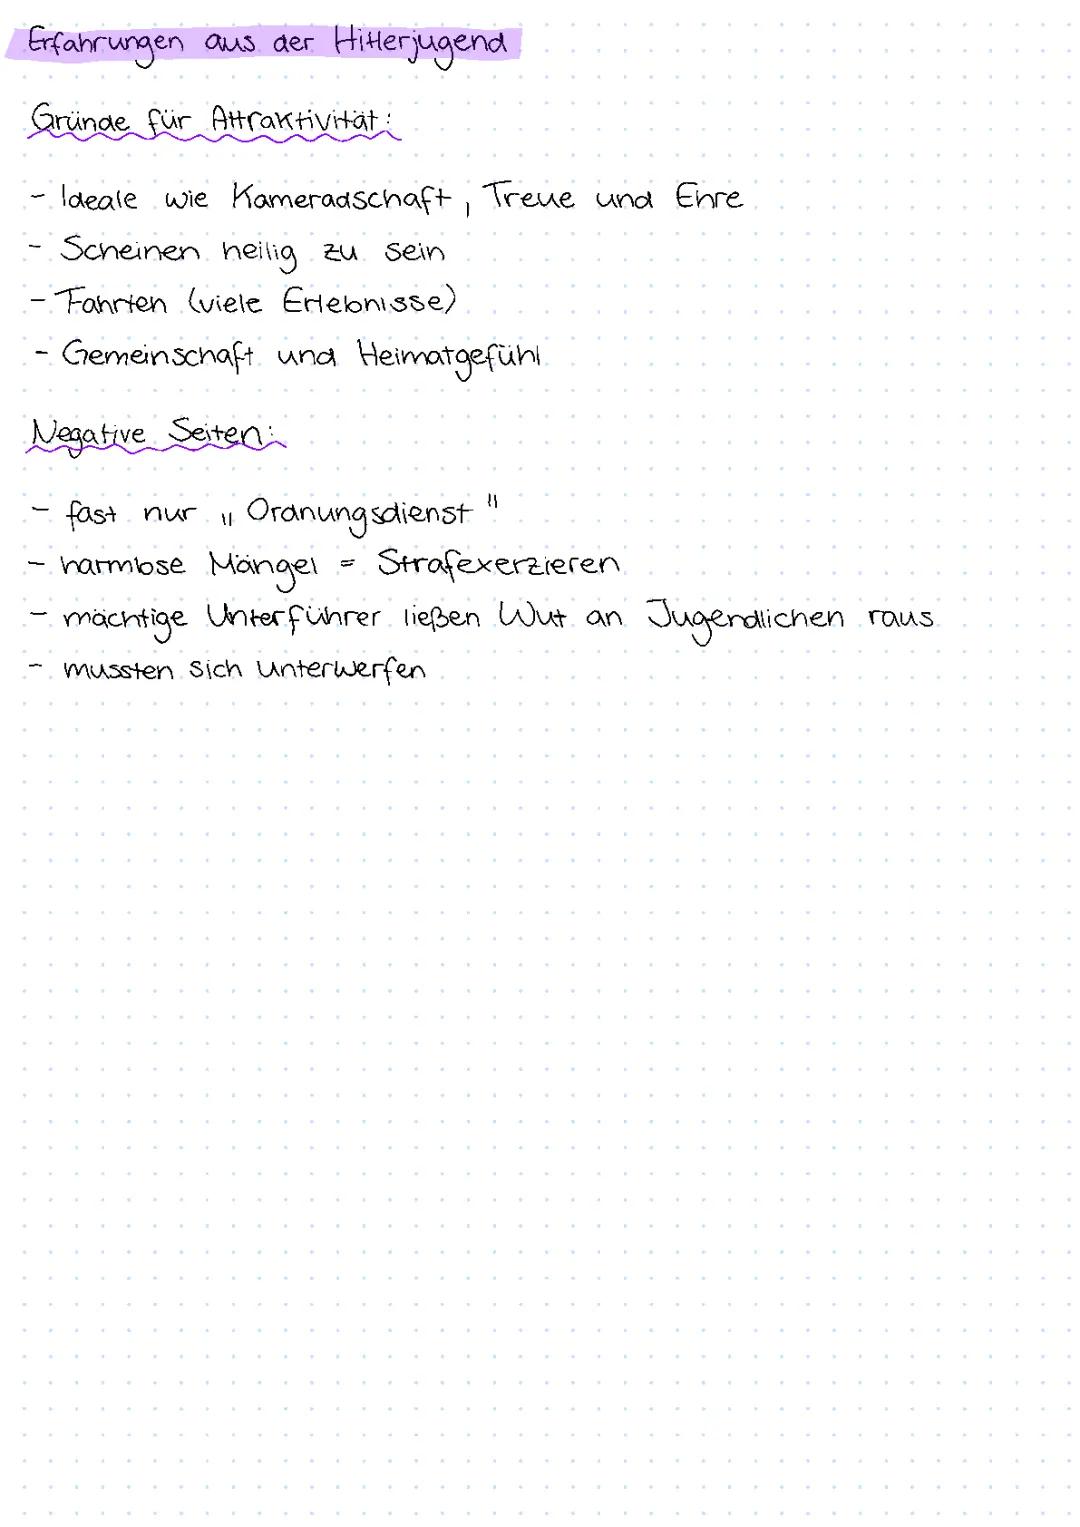 Erfahrungen aus der Hitlerjugend
Gründe für Attraktivität:
- Ideale wie Kameradschaft, Treue und Ehre
- Scheinen heilig zu sein
- Fahrten (viele Erlebnisse)
- Gemeinschaft und Heimatgefühl
Negative Seiten:
- fast nur „Ordnungsdienst"
- harmlose Mängel = Strafexerzieren
- mächtige Unterführer ließen Wut an Jugendlichen raus
- mussten sich unterwerfen